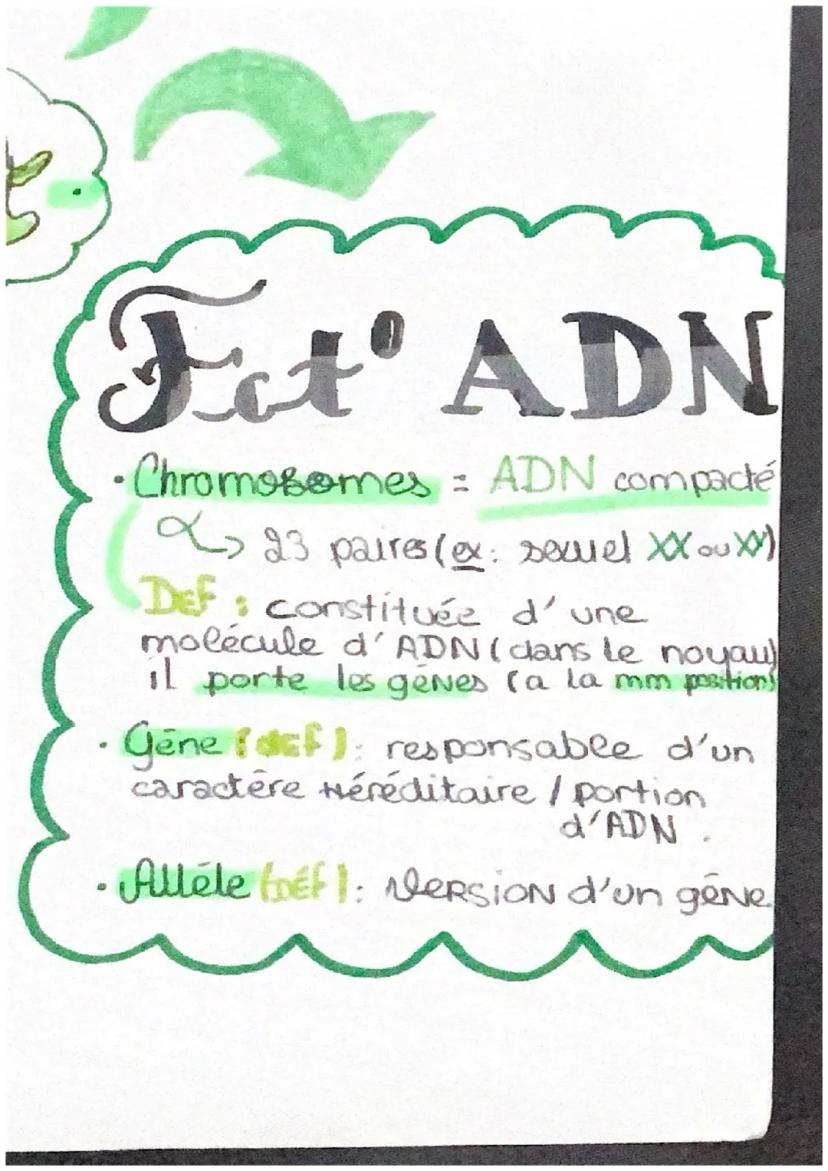 Fct° ADN
• Chromosomes = ADN compacté
↳ 23 paires (ex: sexuel XX ou XY)
Def : constituée d'une
molécule d'ADN (dans le noyau)
il porte les gènes (a la mm position)
• Gène (def) : responsable d'un
caractère Héréditaire / portion
d'ADN.
• Allèle (Déf) : Version d'un gène